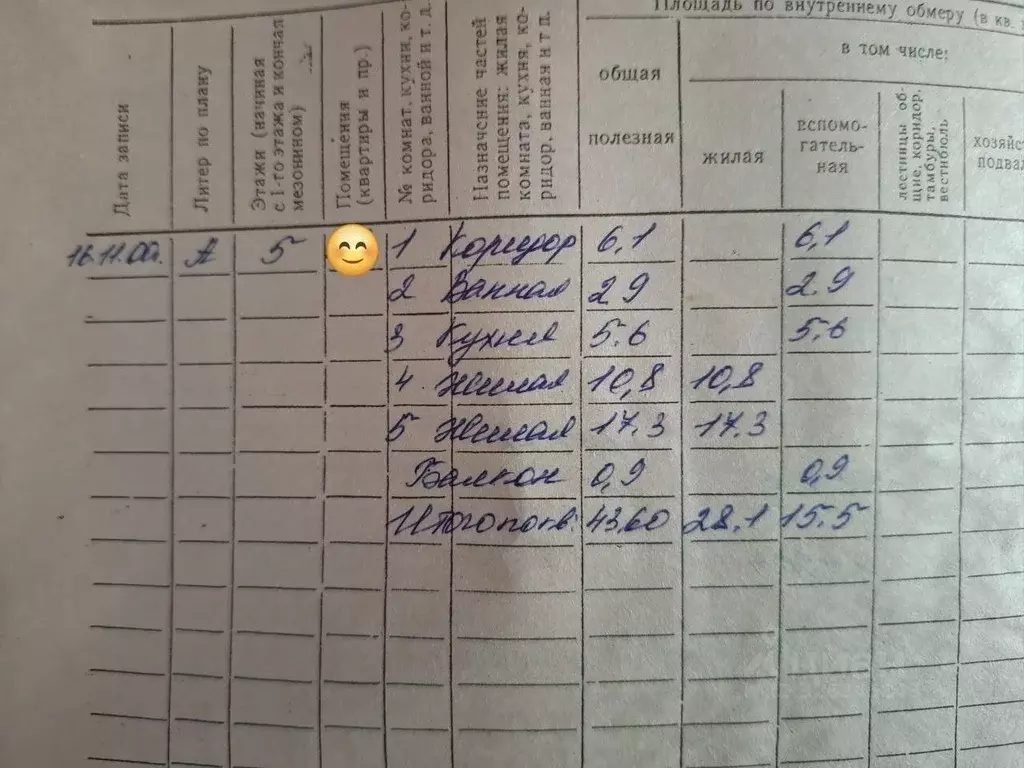 Площадь по внутреннему обмеру (в кв.
в том числе:
Дата записи
Литер по плану
Этажи (начиная
с 1-го этажа и кончая
мезонином)
Помещения
(квартиры и пр.)
№ комнат, кухни, ко-
ридора, ванной и т. д.
Назначение частей
помещения: жилая
комната, кухня, ко-
ридор, ванная и т п.
общая
полезная
жилая
вспомо-
гатель-
ная
лестницы об-
щие, коридор,
тамбуры,
вестибюль
хозяйс
подвал
16.11.00г. А 5 1 Коридор 6,1 6,1
2 Ванная 2 9 2.9
3 Кухня 5.6 5.6
4 Жилая 10,8 10,8
5 Жилая 17.3 17.3
Балкон 0,9 0,9
Итого по кв: 43.60 28.1 15.5